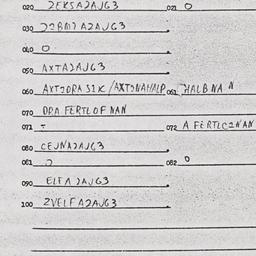 020 ZEKSAJAJG3 021 0
030 JORMJAZAJG3
040 0
050 AXTAJAJG3
060 AXTJORA SIX /AXTJNAHALP 061 HALBNAN
070 ORA FERTLOF NAN
071 - 072 A FERTLCINAN
080 CEJNAJAJG3
081 082 0
090 ELFAJAJG3
100 ZVELFAJAJG3